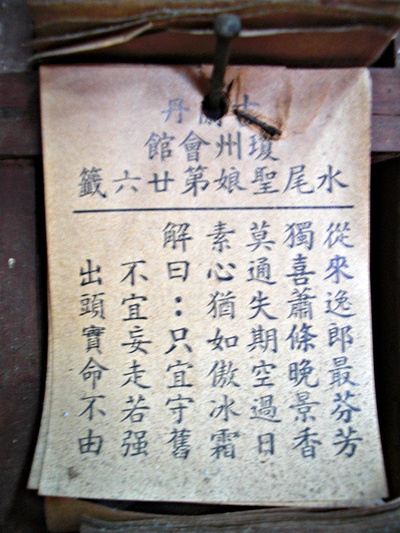 吉蘭丹
瓊州會館
水尾聖娘第廿六籤
從來逸郎最芬芳
獨喜蕭條晚景香
莫通失期空過日
素心猶如傲冰霜
解曰：只宜守舊
不宜妄走若强
出頭實命不由